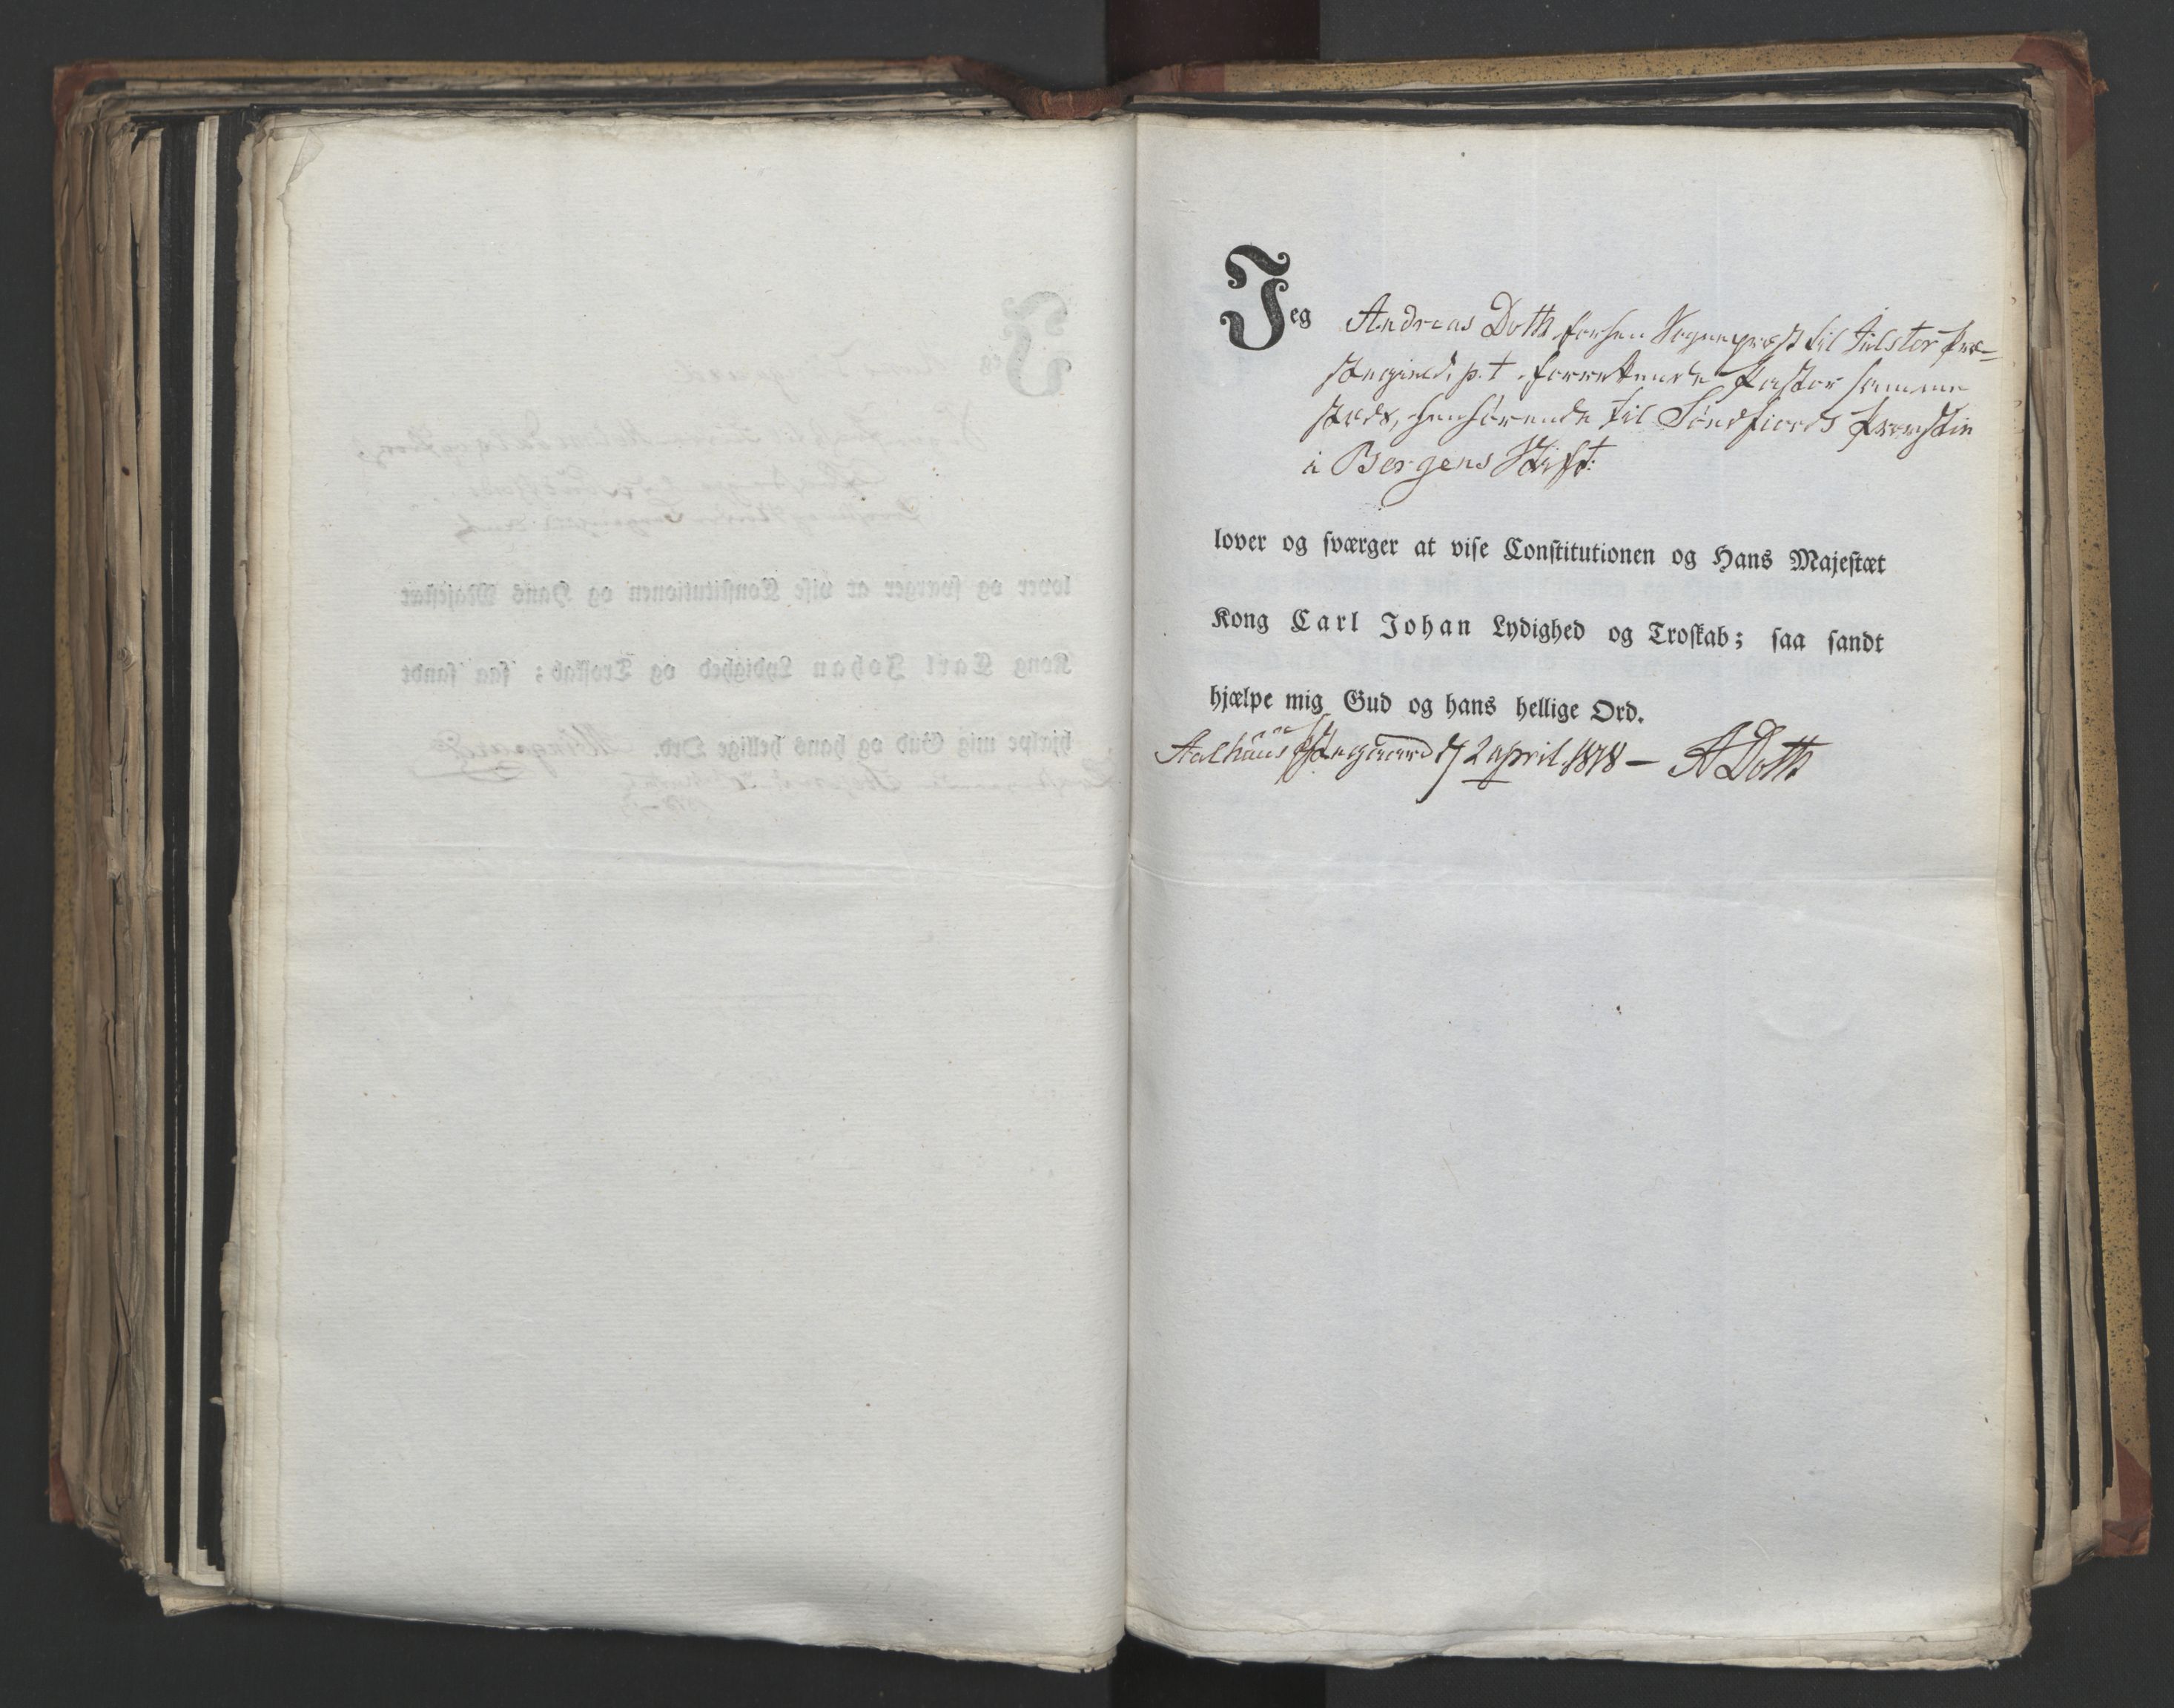 Jeg Andreas Doth forhen Sogneprest til Jølster Præ-
stegield, p. t. forrettende Pastor samme
steds, henhørende til Søndfiords Provstie
i Bergens Stift:
lover og sværger at vise Constitutionen og Hans Majestæt
Kong Carl Johan Lydighed og Troskab; saa sandt
hjælpe mig Gud og hans hellige Ord.
Aalhuus Præstegaard 2 april 1818 – A Doth